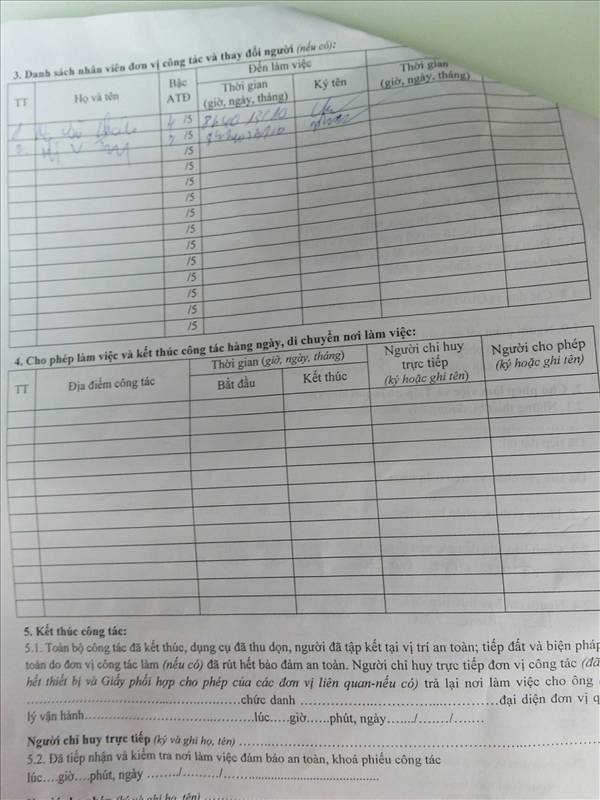 3. Danh sách nhân viên đơn vị công tác và thay đổi người (nếu có):
TT Họ và tên Bậc ATĐ Đến làm việc
Thời gian (giờ, ngày, tháng) Ký tên Thời gian (giờ, ngày, tháng)
/5
/5
/5
/5
/5
/5
/5
/5
/5
/5
/5
/5
/5
/5
4. Cho phép làm việc và kết thúc công tác hàng ngày, di chuyển nơi làm việc:
TT Địa điểm công tác Thời gian (giờ, ngày, tháng) Người chỉ huy trực tiếp (ký hoặc ghi tên) Người cho phép (ký hoặc ghi tên)
Bắt đầu Kết thúc
5. Kết thúc công tác:
5.1. Toàn bộ công tác đã kết thúc, dụng cụ đã thu dọn, người đã tập kết tại vị trí an toàn; tiếp đất và biện pháp
toàn do đơn vị công tác làm (nếu có) đã rút hết bảo đảm an toàn. Người chỉ huy trực tiếp đơn vị công tác (đã
hết thiết bị và Giấy phối hợp cho phép của các đơn vị liên quan-nếu có) trả lại nơi làm việc cho ông
chức danh ............ đại diện đơn vị q
lý vận hành............lúc.....giờ......phút, ngày......./......../.......
Người chỉ huy trực tiếp (ký và ghi họ, tên)
5.2. Đã tiếp nhận và kiểm tra nơi làm việc đảm bảo an toàn, khoá phiếu công tác
lúc....giờ....phút, ngày ......../........./............
(ký và ghi họ, tên)